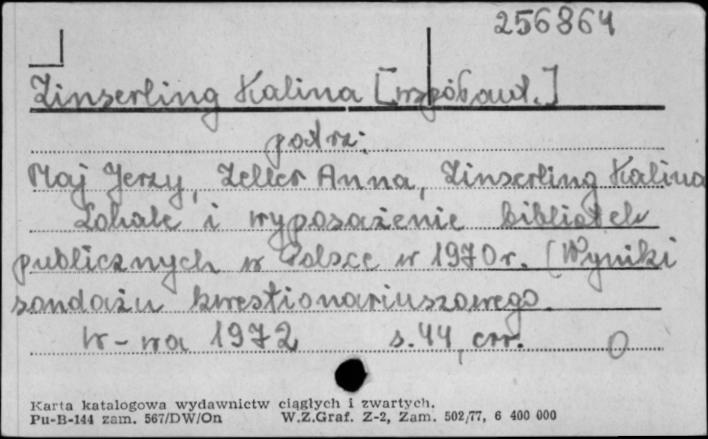 256864
Zinserling Kalina [współaut.]
patrz:
Maj Jerzy, Zeller Anna, Zinserling Kalina
Lokale i wyposażenie bibliotek
publicznych w Polsce w 1970 r. (Wyniki
sondażu kwestionariuszowego.
W-wa 1972 s. 44,
Karta katalogowa wydawnictw ciągłych i zwartych.
Pu-B-144 zam. 567/DW/On W.Z.Graf. Z-2, Zam. 502/77, 6 400 000